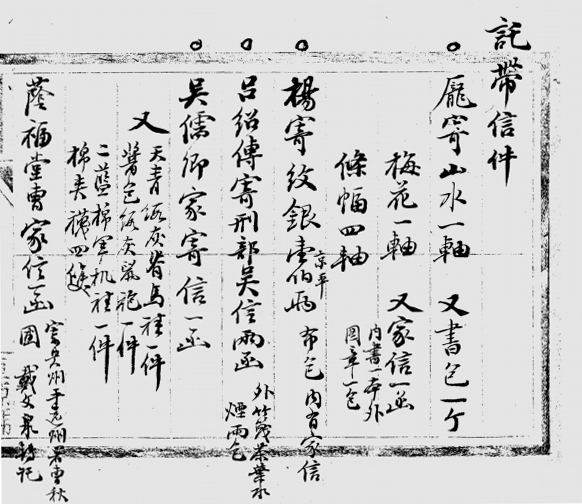 託帶信件
龐寄山水一軸 又書包一个
梅花一軸 又家信一函
條幅四軸 內書一本外
圖章一包
楊寄紋銀壹佰兩 京平 布包 內有家信
呂紹傳寄刑部吳信兩函 外竹箋茶葉水
煙兩包
吳儒卿家寄信一函
又 天青緞灰脊馬褂一件
醬色緞灰鼠袍一件
二藍棉軍机褂一件
棉夾襪四雙
蔭福堂曹家信一函
戴文泉